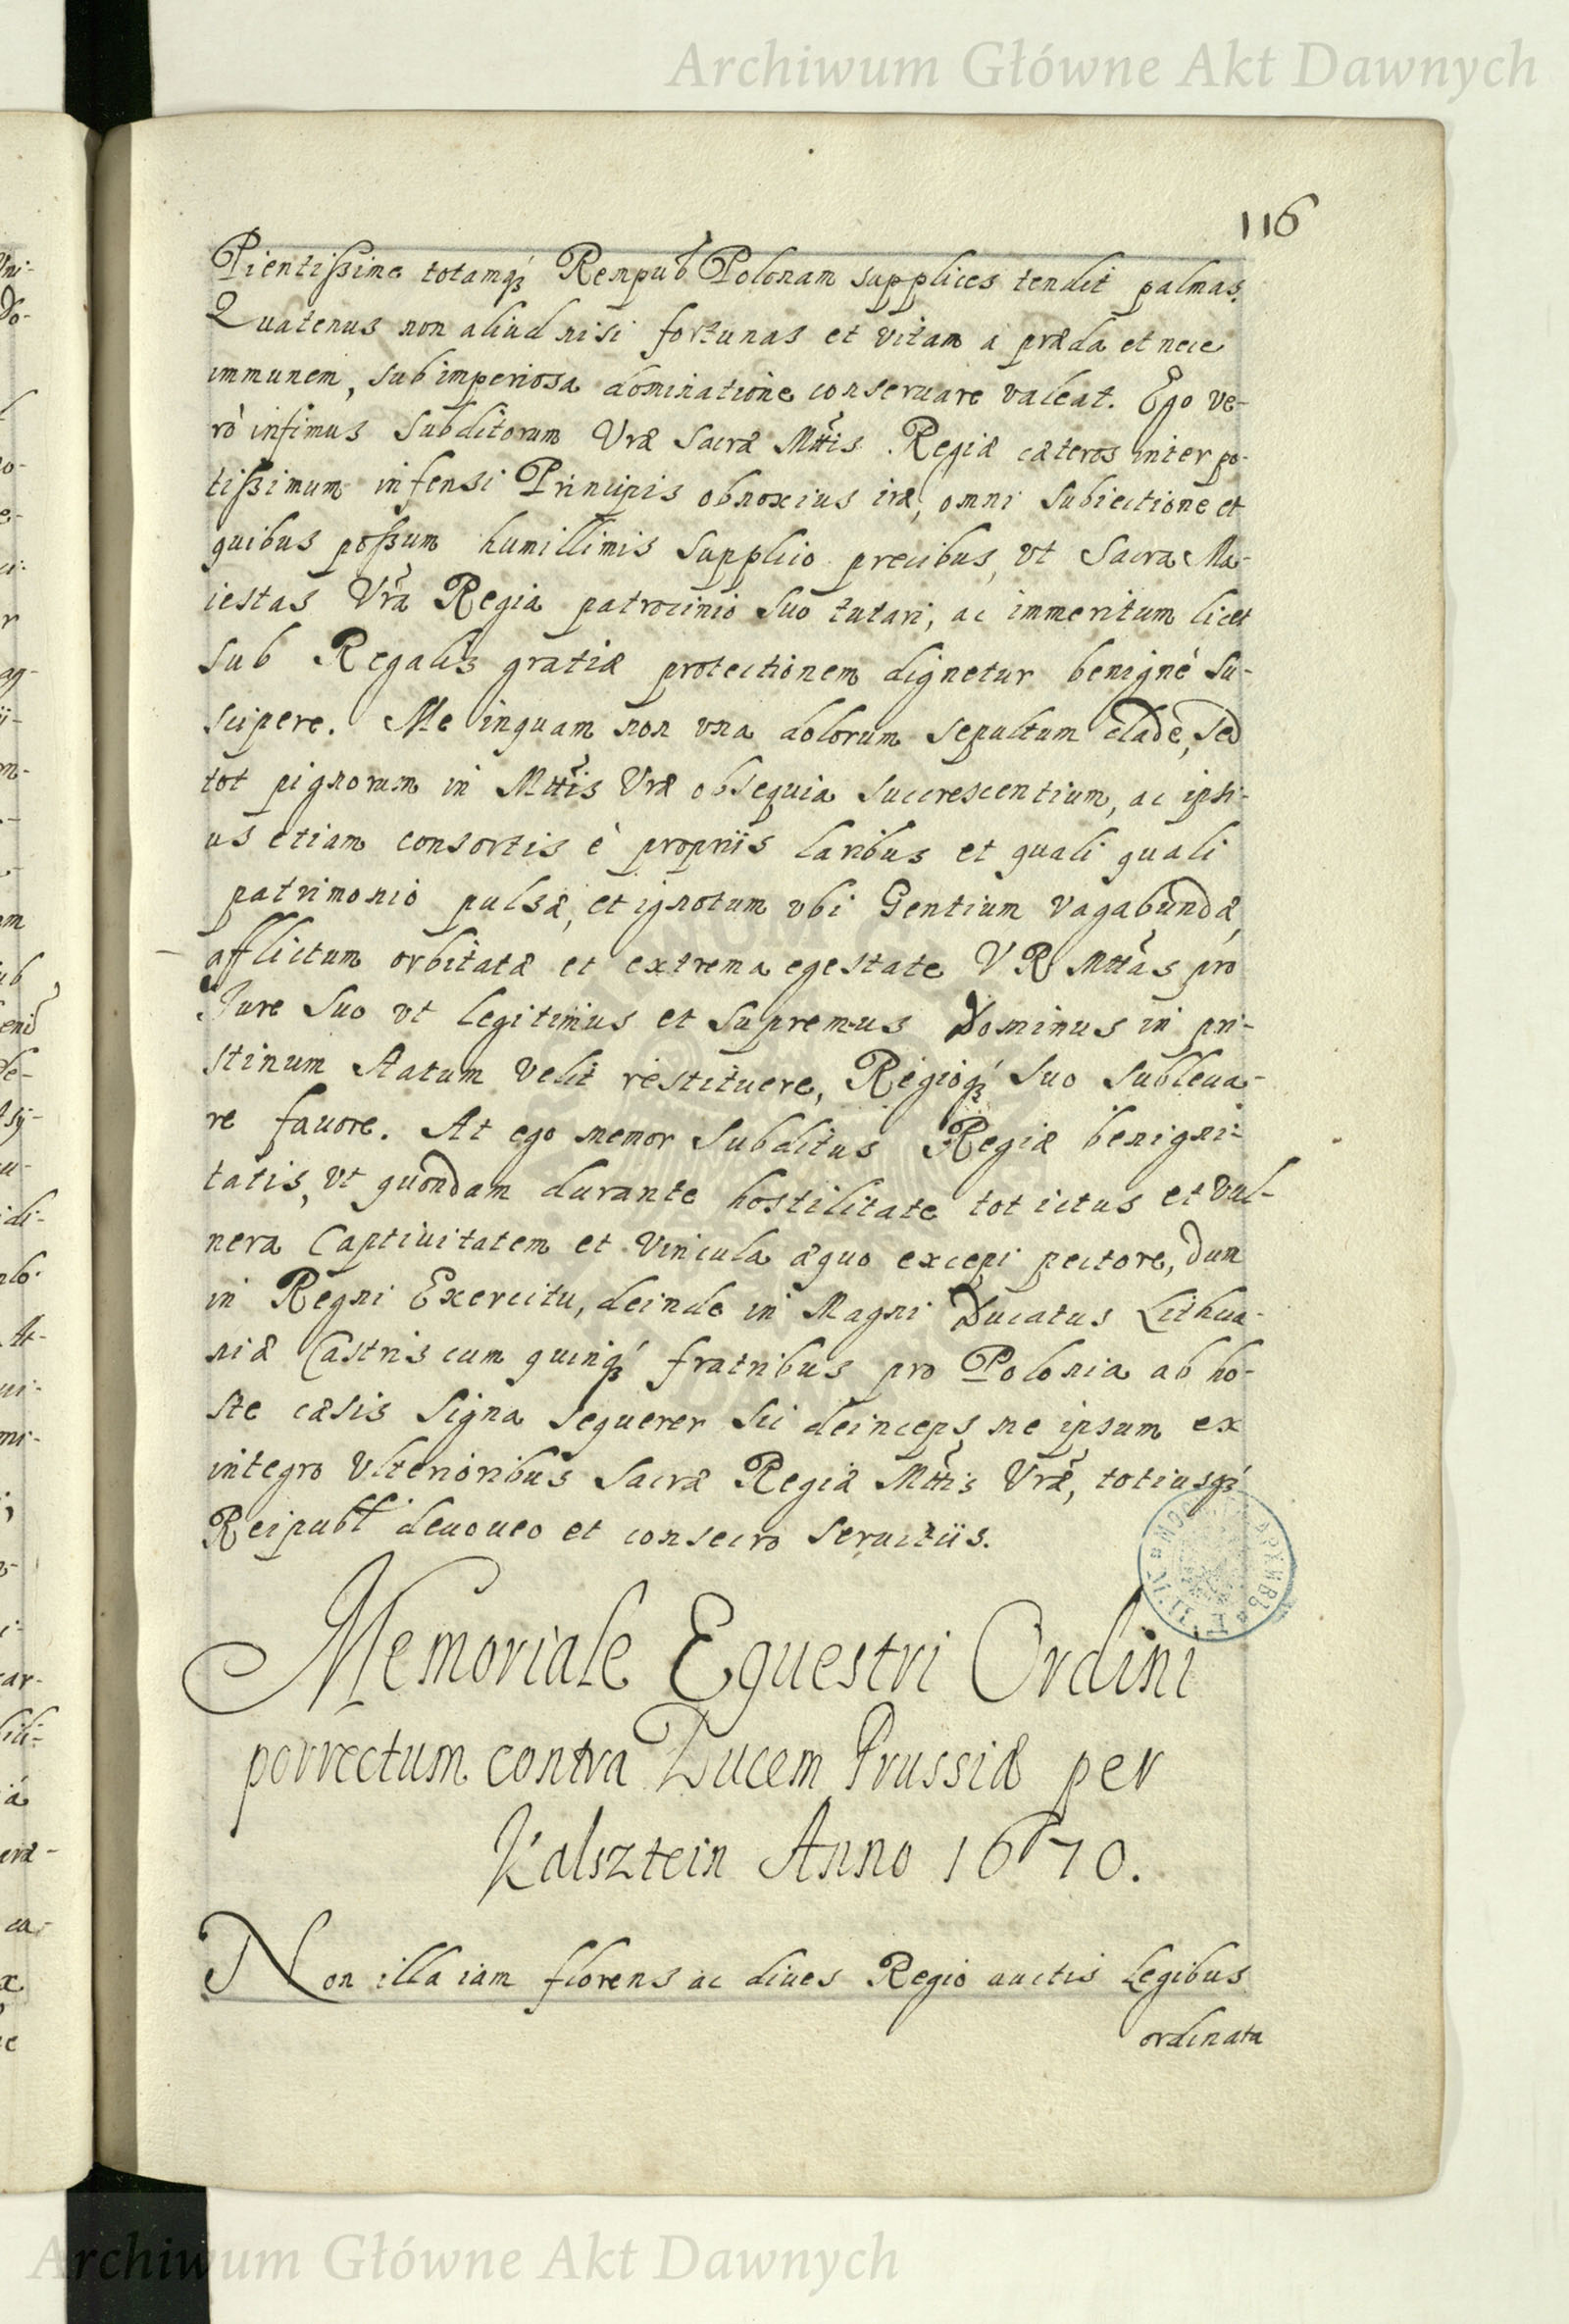 Archiwum Główne Akt Dawnych
116
Pientißime totamqꝫ Rempub Polonam supplices tendit palmas.
Quatenus non aliud nisi fortunas et vitam a præda et nece
immunem, sub imperiosa dominatione conseruare valeat. Ego ve-
rò infimus Subditorum Vræ Sacræ Mttis Regiæ cæteros inter po-
tißimum infensi Principis obnoxius iræ, omni subiectione et
quibus poßum humillimis supplico precibus, vt Sacra Ma-
iestas Vra Regia patrocinio suo tutari, ac immeritum licet
sub Regalis gratiæ protectionem dignetur benignè su-
scipere. Me inquam non vna dolorum sepultum clade, sed
tot pignorum in Mttis Vræ obsequia succrescentium, ac ipsi-
us etiam consortis è propriis laribus et quali quali
patrimonio pulsæ, et ignotum vbi Gentium vagabundæ,
afflictum orbitatæ et extrema egestate V R Mttas pro
Jure suo vt legitimus et supremus Dominus in pri-
stinum statum velit restituere, Regioqꝫ suo subleua-
re fauore. At ego memor subditus Regiæ benigni-
tatis, vt quondam durante hostilitate tot ictus et vul-
nera Captiuitatem et vincula æquo excepi pectore, dum
in Regni Exercitu, deinde in Magni Ducatus Lithua-
niæ Castris cum quinqꝫ fratribus pro Polonia ab ho-
ste cæsis signa sequerer sic deinceps me ipsum ex
integro vlterioribus Sacræ Regiæ Mttis Vræ, totiusqꝫ
Reipubl deuoueo et consecro seruitiis.
Memoriale Equestri Ordini
porrectum contra Ducem Prussiæ per
Kalsztein Anno 1670.
Non illa iam florens ac diues Regio auctis Legibus
ordinata
Archiwum Główne Akt Dawnych